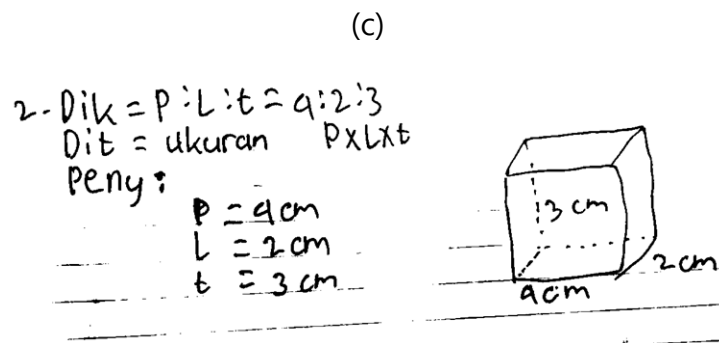 (c)
2. Dik = P : L : t = 4 : 2 : 3
Dit = ukuran P x L x t
Peny :
P = 4 cm
L = 2 cm
t = 3 cm
3 cm
2 cm
4 cm